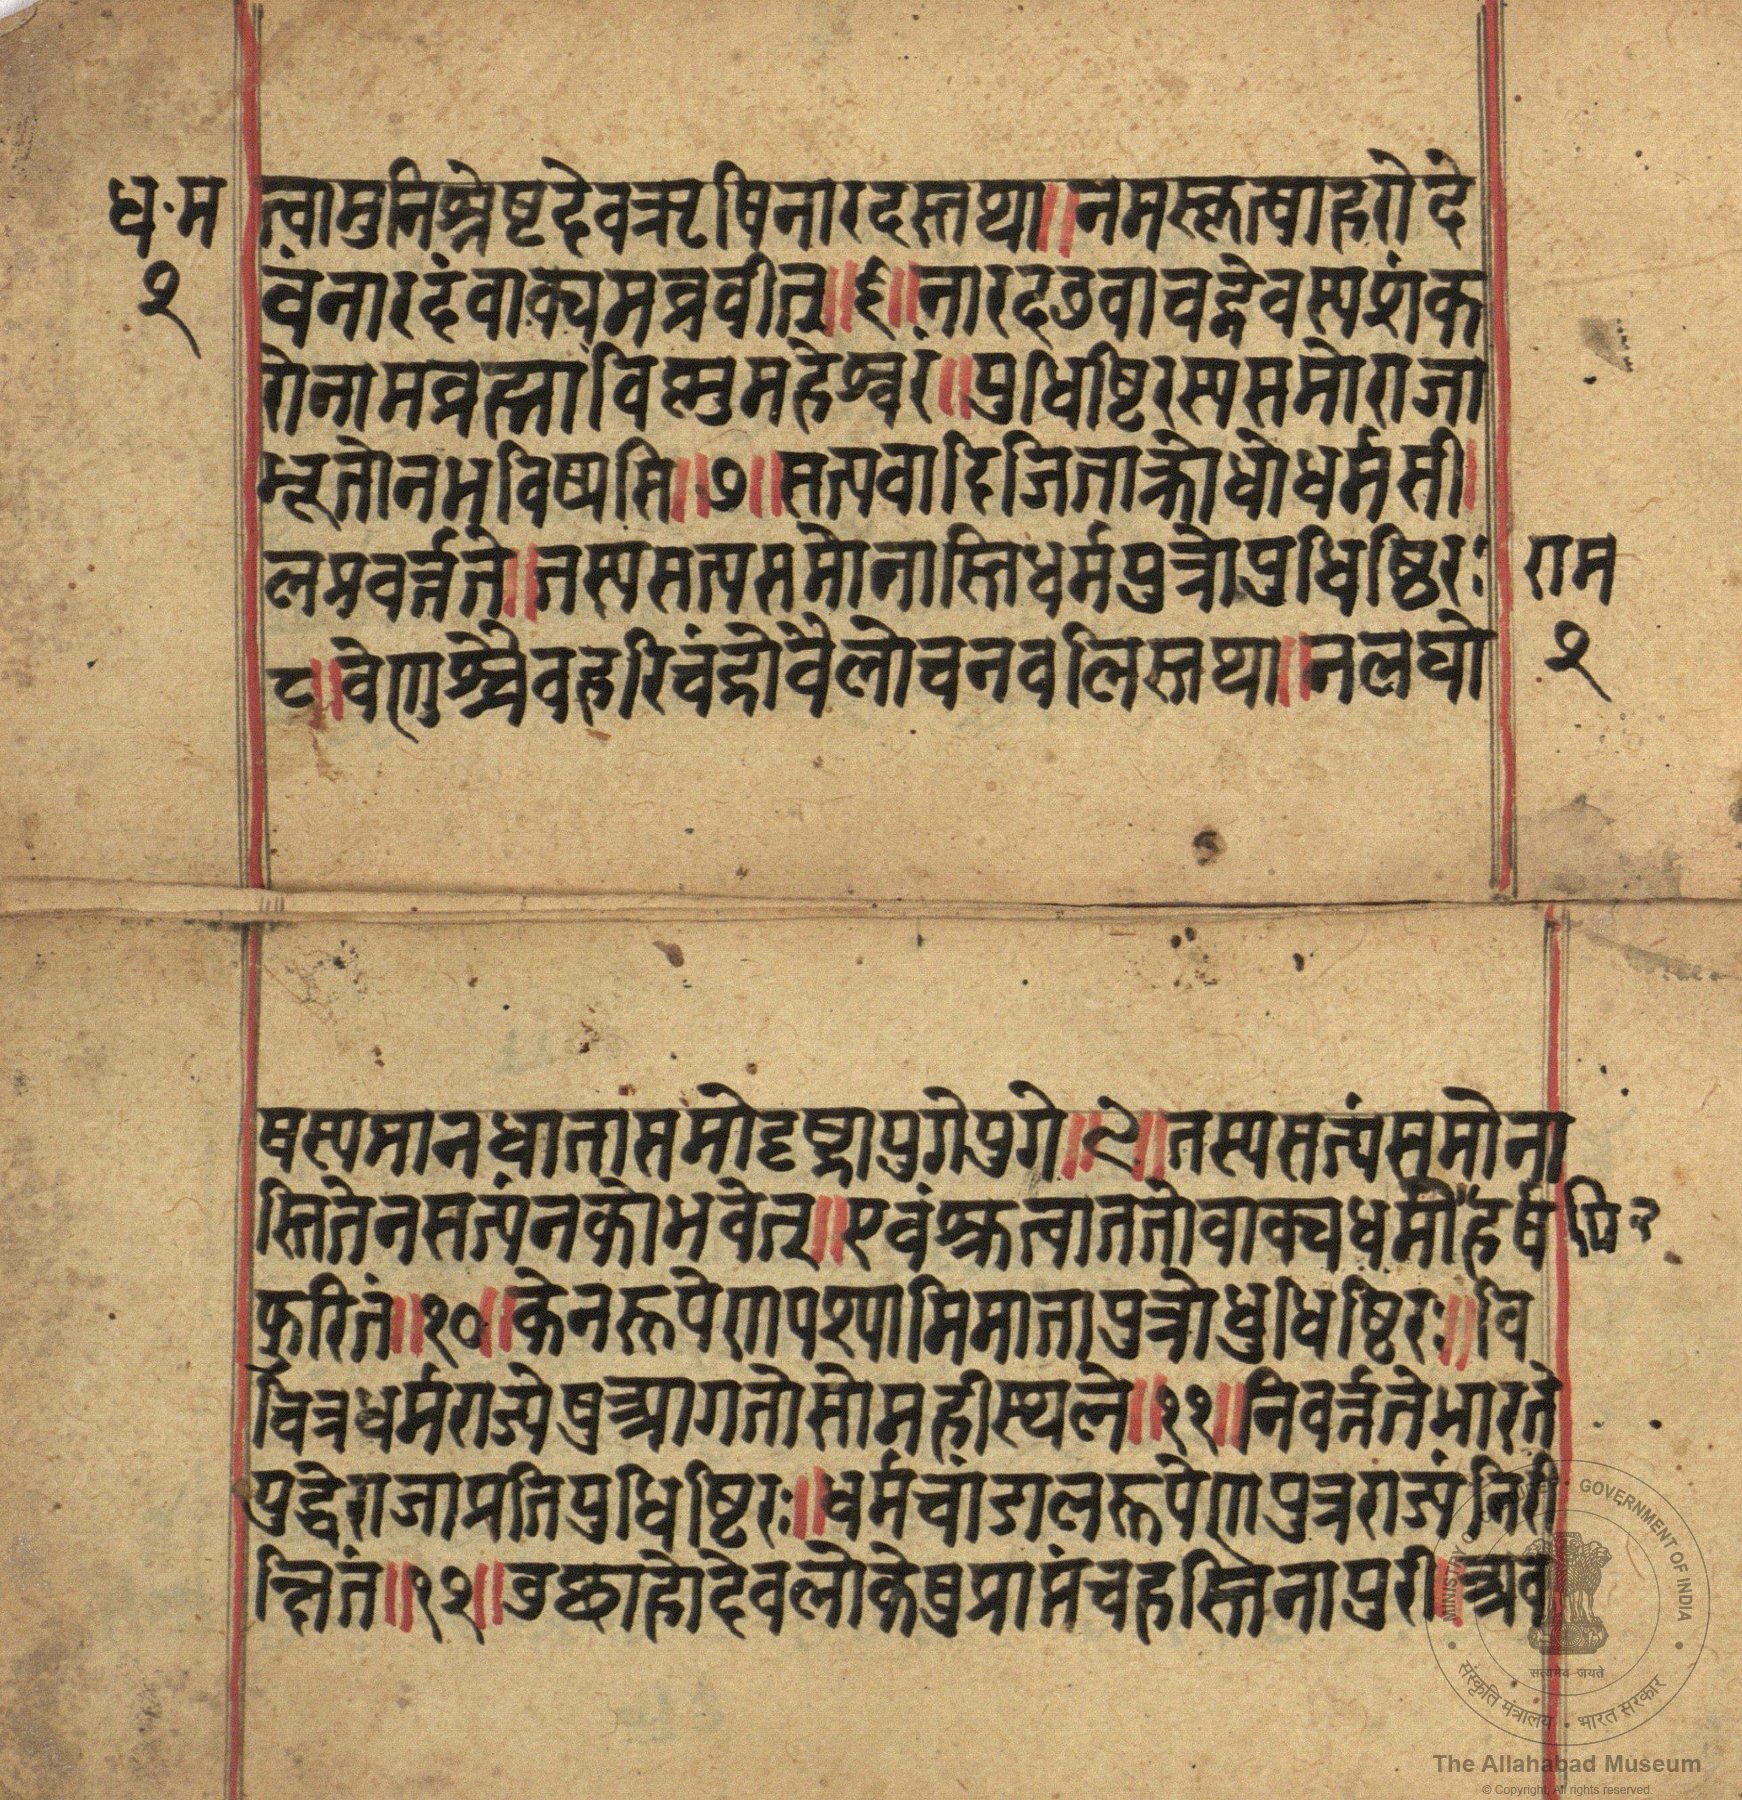 ध॰म
१
त्वामुनिश्रेष्टदेवऋषिनारदस्तथा॥नमस्कृत्वाहरोदे
वंनारदंवाक्यमव्रवीत्॥६॥नारदउवाचद्देवस्यशंक
रोनामव्रह्माविष्णुमहेश्वरं॥युधिष्टिरस्यसमोराजा
भूतोनभविष्यसि॥७॥सत्यवादिजिताक्रोधोधर्मसी
लप्रवर्त्तते॥तस्यसत्यसमोनास्तिधर्मपुत्रोयुधिष्ठिरः
८॥वेणुश्चैवहरिचंद्रोवैलोचनवलिस्तथा॥नलघो
राम
१
षस्यमानधातासमोदृष्ट्वायुगेयुगे॥९॥तस्यसत्यंसमोना
स्तितेनसत्यंनकोभवेत्॥एवंश्रुत्वाततोवाक्यधर्मोहर्ष
पि२
फुरितं॥१०॥केनरूपेणपश्यामिमातापुत्रोयुधिष्ठिरः॥वि
चित्रधर्मराज्येषुआगतोसोमहीस्थले॥११॥निवर्त्ततेभारते
युद्धेराजाप्रतियुधिष्टिरः॥धर्मचांडालरूपेणपुत्रराज्यंनिरी
क्षितं॥१२॥इछाहोदेवलोकेषुप्राप्तंचहस्तिनापुरी॥अव
MINISTRY OF CULTURE · GOVERNMENT OF INDIA
सत्यमेव जयते
संस्कृति मंत्रालय · भारत सरकार
The Allahabad Museum
© Copyright, All rights reserved.